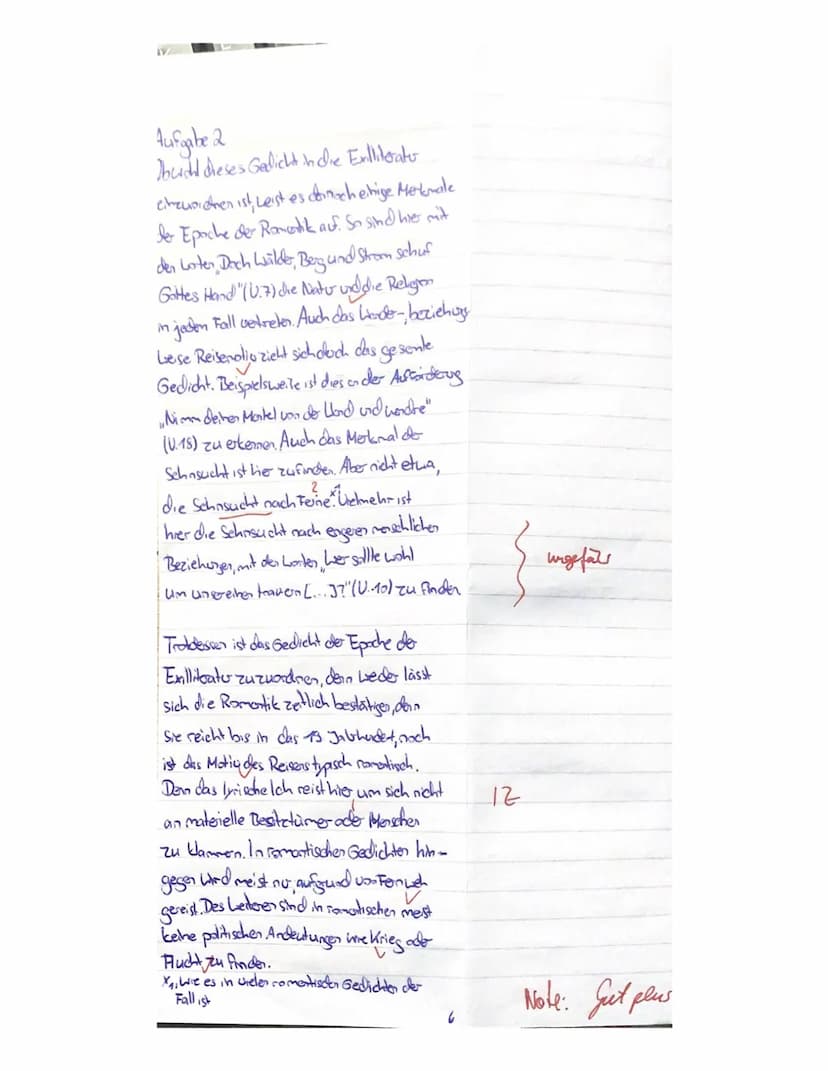 Aufgabe 2
Obwohl dieses Gedicht in die Exilliteratur
einzuordnen ist, weist es dennoch einige Merkmale
der Epoche der Romantik auf. So sind hier mit
den Worten „Doch Wälder, Berg und Strom schuf
Gottes Hand" (V.7) die Natur und die Religion
in jedem Fall vertreten. Auch das Wander-, beziehungs
weise Reisemotiv zieht sich durch das gesamte
Gedicht. Beispielsweise ist dies an der Aufforderung
„Nimm deinen Mantel von der Wand und wandre"
(V.15) zu erkennen. Auch das Merkmal der
Sehnsucht ist hier zu finden. Aber nicht etwa,
?
die Sehnsucht nach Ferne.*1 Vielmehr ist
hier die Sehnsucht nach engeren menschlichen
Beziehungen, mit den Worten „Wer sollte wohl
ungefähr
um unsereinen trauern [...]?" (V.10) zu finden
Trotdessen ist das Gedicht der Epoche der
Exilliteratur zuzuordnen, denn weder lässt
sich die Romantik zeitlich bestätigen, denn
sie reicht bis in das 19 Jahrhundert, noch
ist das Motiv des Reisens typisch romantisch.
Denn das lyrische Ich reist hier um sich nicht
IZ
an materielle Besitztümer oder Menschen
zu klammern. In romantischen Gedichten hin-
gegen wird meist nur aufgrund von Fernweh
gereist. Des Weiteren sind in romantischen meist
keine politischen Andeutungen wie Krieg oder
Flucht zu finden.
*1, wie es in vielen romantischen Gedichten der
Fall ist
6
Note: Gut plus